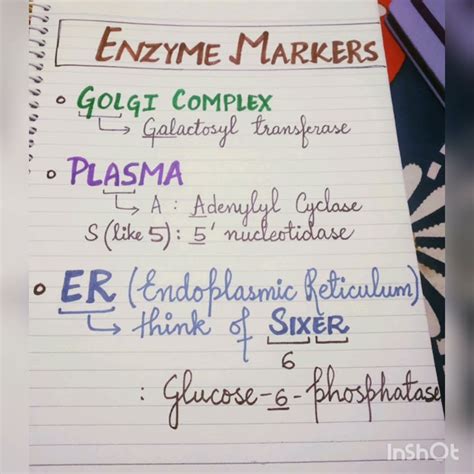 ENZYME MARKERS
GOLGI COMPLEX
Galactosyl transferase
PLASMA
A : Adenylyl Cyclase
S (like 5) : 5' nucleotidase
ER (Endoplasmic Reticulum)
think of SIXER
6
: Glucose-6-phosphatase
InShOt